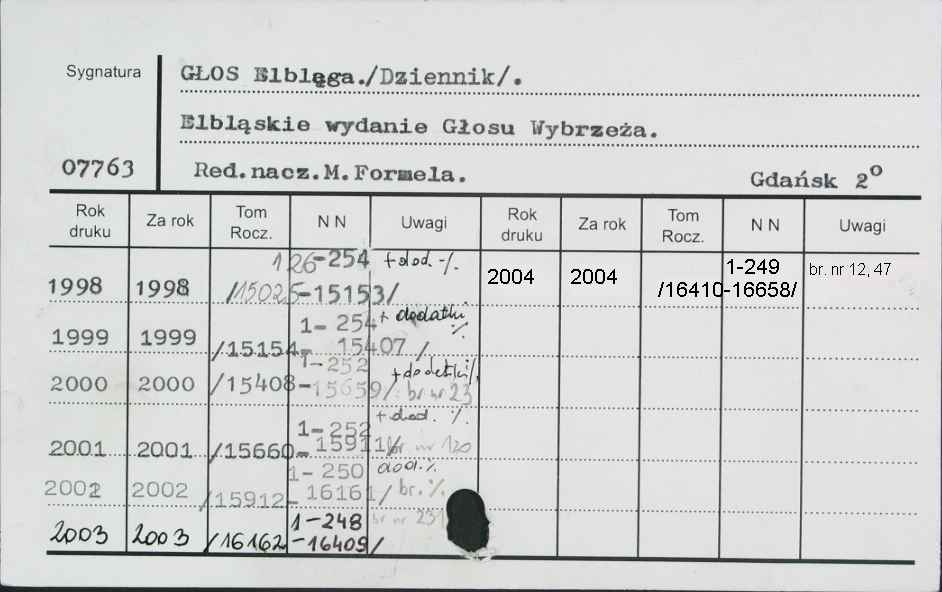 Sygnatura
GŁOS Elbląga./Dziennik/.
Elbląskie wydanie Głosu Wybrzeża.
07763 Red.nacz.M.Formela. Gdańsk 2º
Rok druku Za rok Tom Rocz. N N Uwagi Rok druku Za rok Tom Rocz. N N Uwagi
126-254 + dod. -/.
1998 1998 /15025-15153/
1-254 + dodatki %
1999 1999 /15154-15407/
1-252 + dodatki %
2000 2000 /15408-15659/ br nr 23
1-252 + dod. %
2001 2001 /15660-15911/ br nr 120
1-250 dod. %
2002 2002 /15912-16161/ br. %
1-248 br nr 231
2003 2003 /16162-16409/
2004 2004 1-249 br. nr 12, 47
/16410-16658/